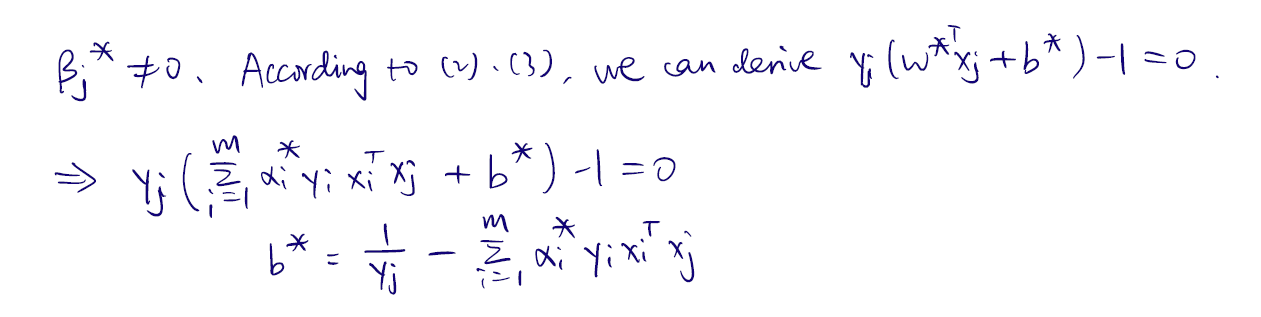 βⱼ* ≠0. According to (2).(3), we can derive yⱼ(w*ᵀxⱼ+b*)-1=0.
⇒ yⱼ(∑ᵢ₌₁ᵐ αᵢ*yᵢxᵢᵀxⱼ + b*)-1=0
b* = 1/yⱼ - ∑ᵢ₌₁ᵐ αᵢ*yᵢxᵢᵀxⱼ